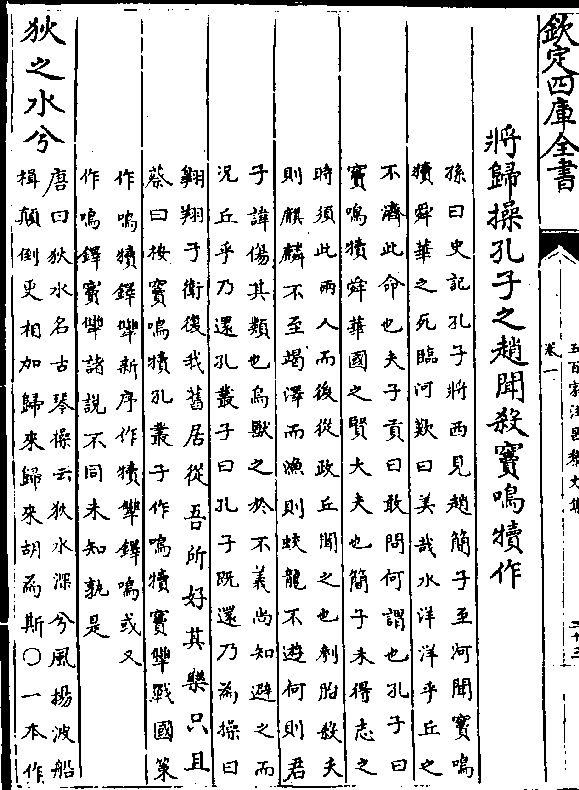 欽定四庫全書
卷一
五百家注昌黎文集
二十三
將歸操孔子之趙聞殺竇鳴犢作
孫曰史記孔子將西見趙簡子至河聞竇鳴
犢舜華之死臨河歎曰美哉水洋洋乎丘之
不濟此命也夫子貢曰敢問何謂也孔子曰
竇鳴犢舜華國之賢大夫也簡子未得志之
時須此兩人而後從政丘聞之也刳胎殺夭
則麒麟不至竭澤而漁則蛟龍不遊何則君
子諱傷其類也鳥獸之於不義尚知避之而
況丘乎乃還孔叢子曰孔子既還乃為操曰
翺翔于衛復我舊居從吾所好其樂只且
蔡曰按竇鳴犢孔叢子作鳴犢竇犨戰國策
作鳴犢鐸犨新序作犢犨鐸鳴或又
作鳴鐸竇犨諸説不同未知孰是
狄之水兮
唐曰狄水名古琴操云狄水深兮風揚波船
楫顛倒更相加歸來歸來胡為斯〇一本作